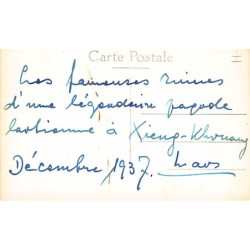 Carte Postale
Les fameuses ruines
d'une légendaire pagode
laotienne à Xieng-Khouang
Décembre 1937. Laos